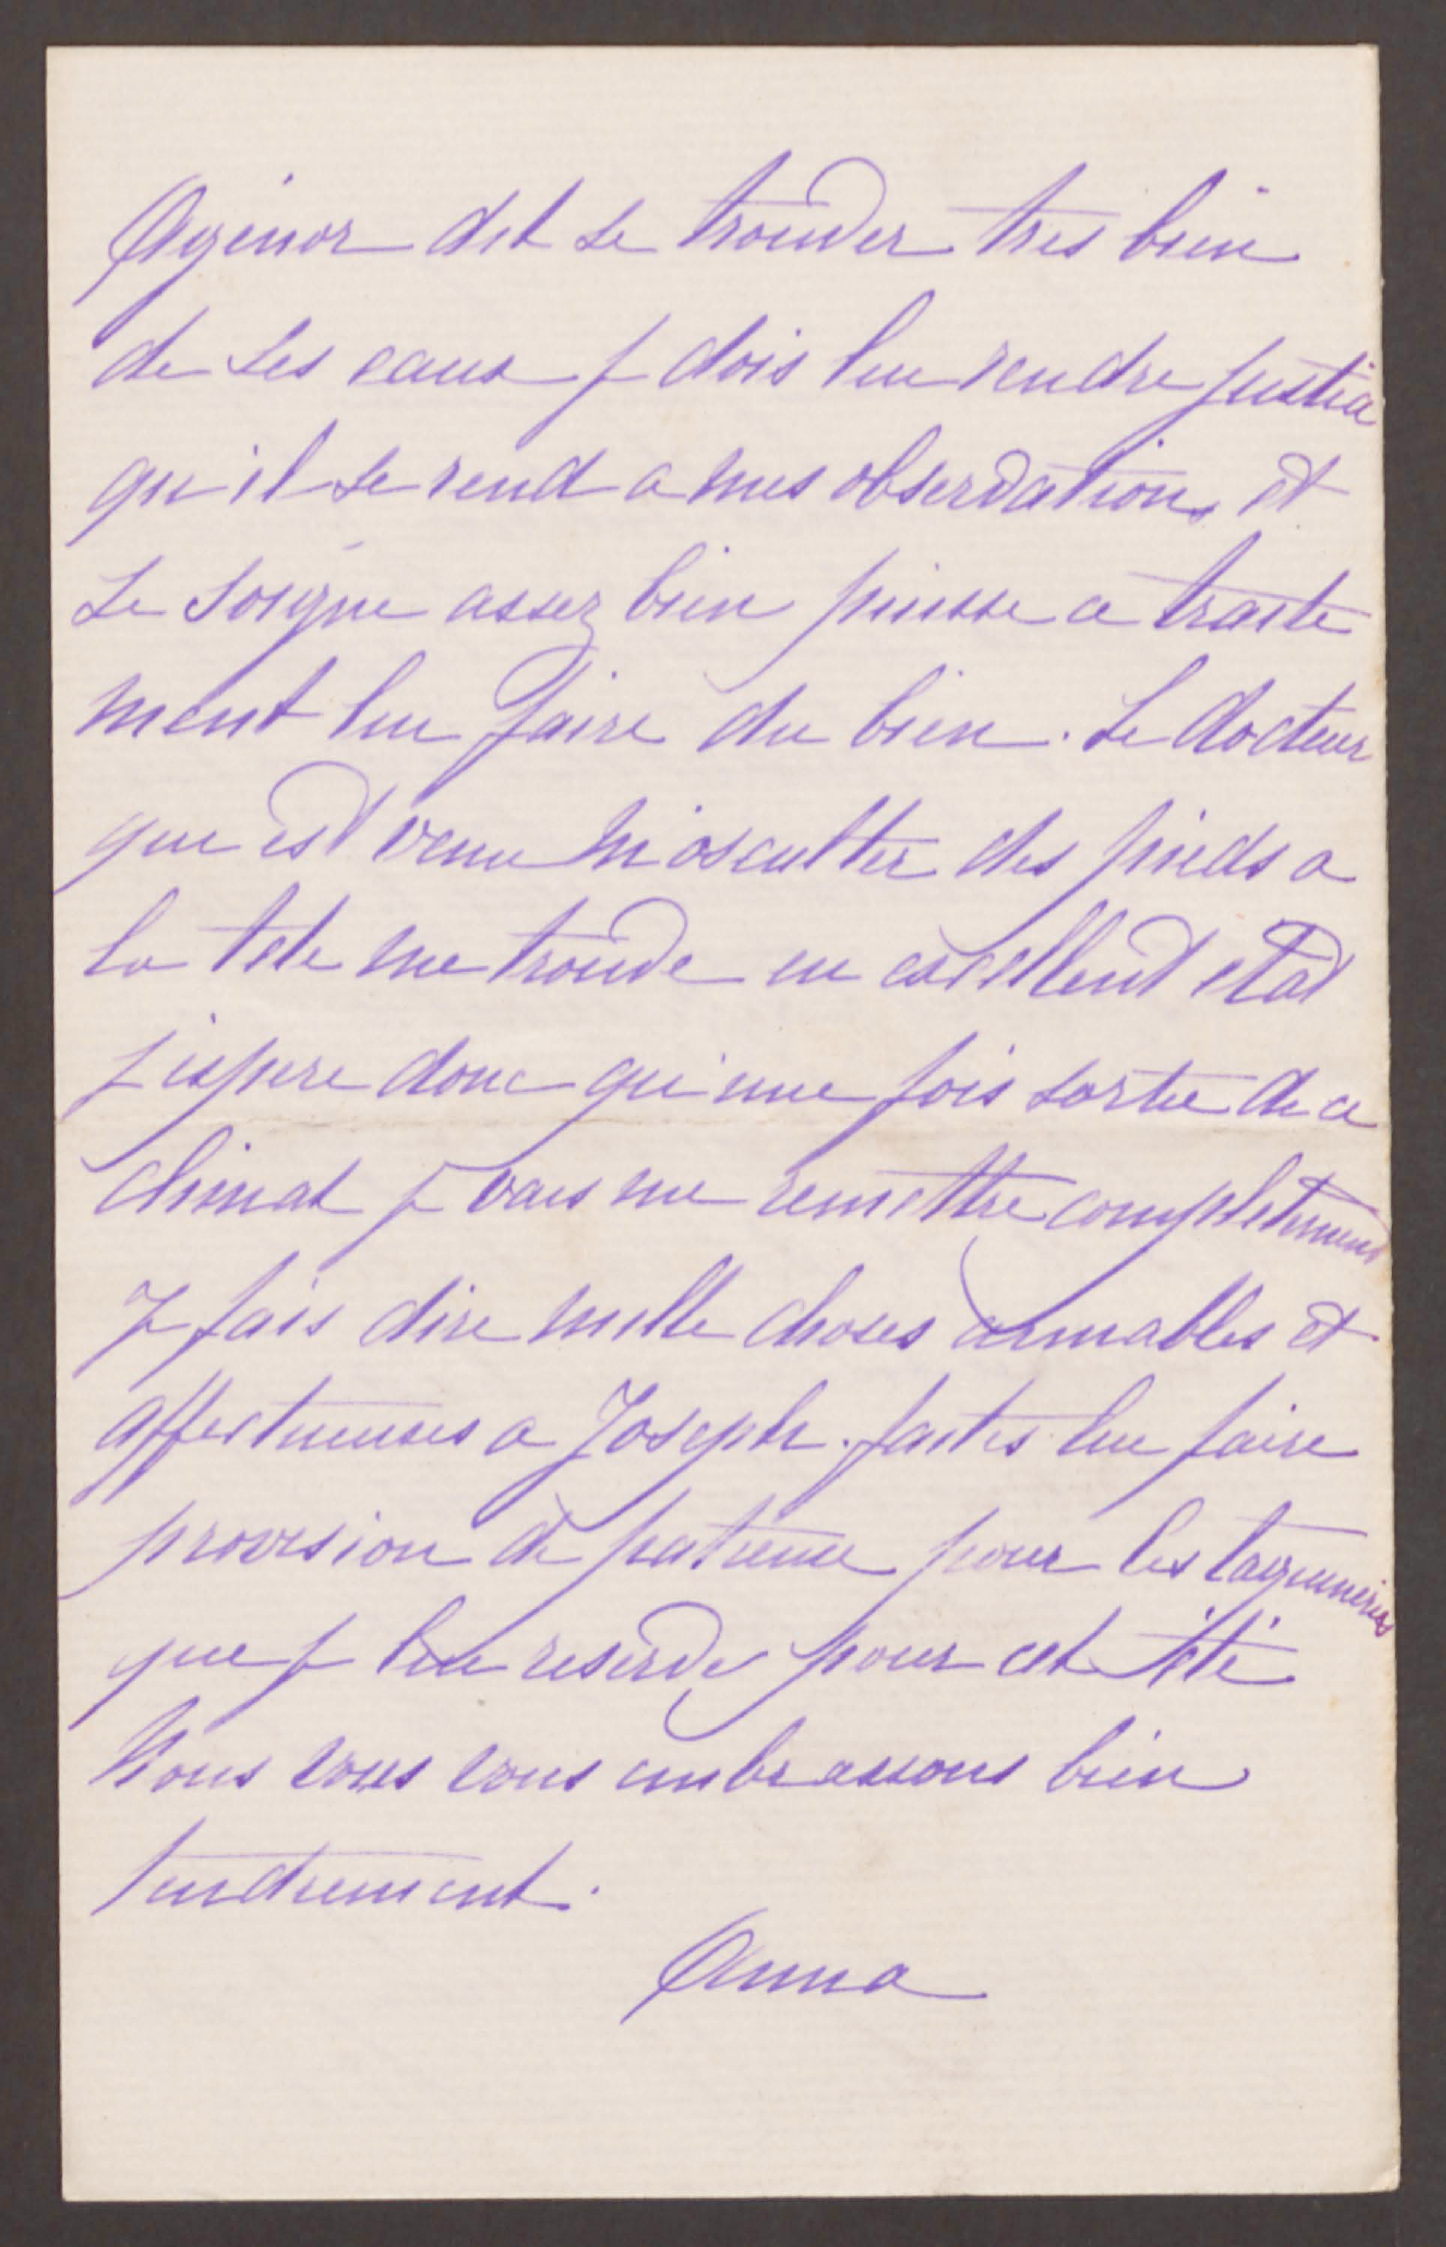 Agénor dit se trouver tres bien
de ses eaux je dois lui rendre justice
qu'il se rend a mes observations et
se soigne assez bien puisse ce traite
ment lui faire du bien. Le docteur
qui est venu m'osculter des pieds a
la tete me trouve en excellent etat
j'espere donc qu'une fois sortie de ce
climat je vais me remettre completement
Je fais dire mille choses aimables et
affectueuses a Joseph. faites lui faire
provision de patience pour les taquineries
que je lui reserve pour cet été
Nous vous embrassons bien
tendrement.
Anna